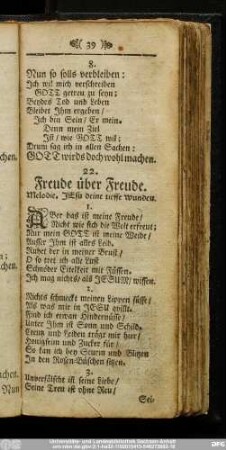 39
8.
Nun so solls verbleiben:
Ich wil mich verschreiben
GOTT getreu zu seyn;
Beydes Tod und Leben
Bleibet Ihm ergeben/
Ich bin Sein/ Er mein.
Denn mein Ziel
Ist/ wie GOTT wil:
Drum sag ich in allen Sachen:
GOTT wirds doch wohl machen.
22.
Freude über Freude.
Melodie. JEsu deine tieffe Wunden.
1.
ABer das ist meine Freude/
Nicht wie sich die Welt erfreut;
Nur mein GOTT ist meine Weide/
Ausser Ihm ist alles Leid.
Ruhet der in meiner Brust/
O so tret ich alle Lust
Schnöder Eitelkeit mit Füssen.
Ich mag nichts/ als JESUM/ wissen.
2.
Nichts schmeckt meinen Lippen süsse/
Als was mir in JESU quillt.
Find ich etwan Hindernüsse/
Unter Ihm ist Sonn und Schild.
Creutz und Leiden trägt mir hier/
Honigseim und Zucker für/
So kan ich bey Sturm und Blitzen
In den Rosen-Büschen sitzen.
3.
Unverfälscht ist seine Liebe/
Seine Treu ist ohne Reu/
Sei-
chen.
chen.
Nun